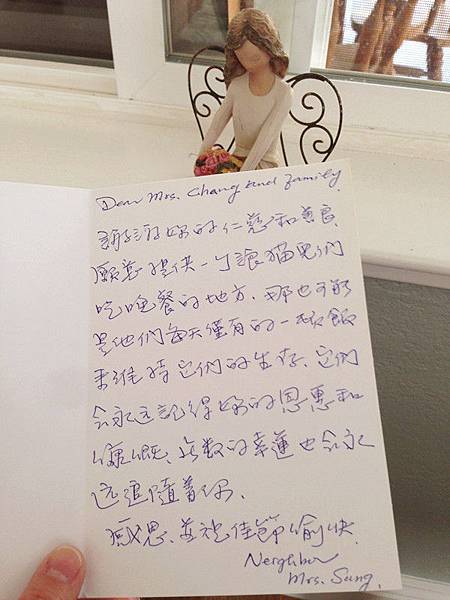 Dear Mrs. Chang and family.
謝謝妳的仁慈和善良、
願意提供一个讓猫兒们
吃晚餐的地方、那也可能
是他们每天僅有的一頓飯
来維持它们的生存、它们
会永远記得妳的恩惠和
慷慨、無数的幸運也会永
远追隨着你、
感恩、並祝佳節愉快、
Neighbor
Mrs. Sung.